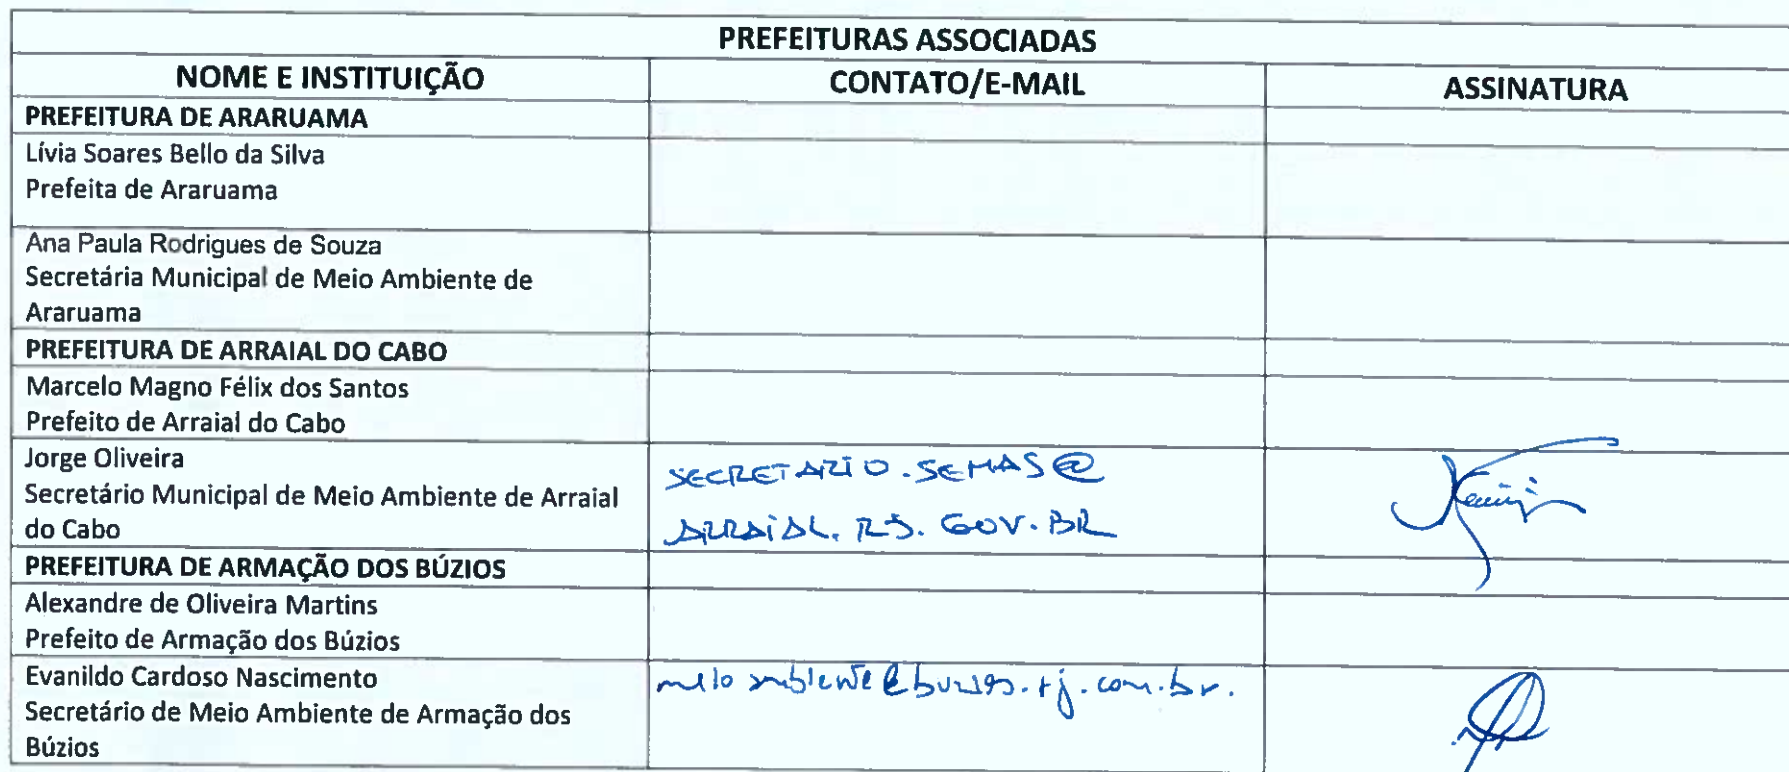 PREFEITURAS ASSOCIADAS
NOME E INSTITUIÇÃO CONTATO/E-MAIL ASSINATURA
PREFEITURA DE ARARUAMA
Lívia Soares Bello da Silva
Prefeita de Araruama
Ana Paula Rodrigues de Souza
Secretária Municipal de Meio Ambiente de
Araruama
PREFEITURA DE ARRAIAL DO CABO
Marcelo Magno Félix dos Santos
Prefeito de Arraial do Cabo
Jorge Oliveira
Secretário Municipal de Meio Ambiente de Arraial
do Cabo
SECRETARIO.SEMAS@
ARRAIAL.RJ.GOV.BR
PREFEITURA DE ARMAÇÃO DOS BÚZIOS
Alexandre de Oliveira Martins
Prefeito de Armação dos Búzios
Evanildo Cardoso Nascimento
Secretário de Meio Ambiente de Armação dos
Búzios
meio ambiente@buzios.rj.com.br.